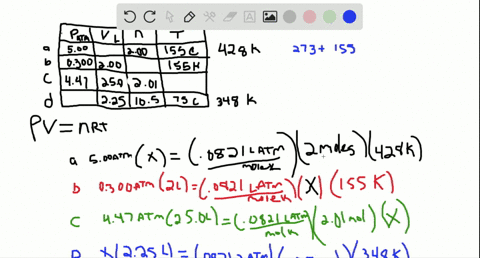 P ATM V L n T
a 5.00 2.00 155C 428K 273+ 155
b 0.300 2.00 155K
C 4.47 25.0 2.01
d 2.25 10.5 75C 348K
PV=nRT
a 5.00ATM (X) = (.0821 LATM/mole K)(2 moles)(428K)
b 0.300ATM (2L) = (.0821 LATM/mole K)(X)(155 K)
C 4.47 ATM (25.0L) = (.0821 LATM/mol K)(2.01mol)(X)
D X(2.25L) = (.0821 LATM 348K)